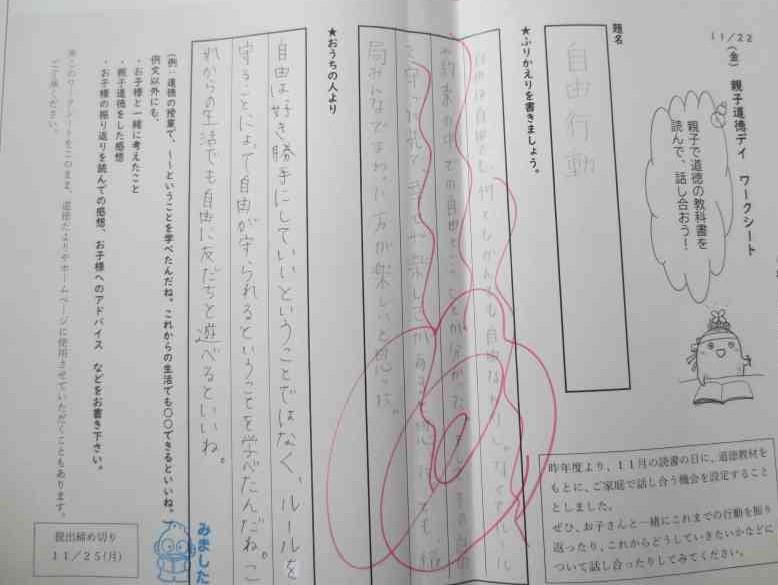 11/22(金) 親子道徳デイ ワークシート
親子で道徳の教科書を
読んで、話し合おう!
昨年度より、11月の読書の日に、道徳教材を
もとに、ご家庭で話し合う機会を設定すること
としました。
ぜひ、お子さんと一緒にこれまでの行動を振り
返ったり、これからどうしていきたいかなどに
ついて話し合ったりしてみてください。
題名
自由行動
★ふりかえりを書きましょう。
自由は自由でも、何でもかんでも自由な
約束の中での自由ということが分かった
局みんなでまわった方が楽しいと思った。
★おうちの人より
自由は好き勝手にしていいということではなく、ルールを
守ることによって自由が守られるということを学べたんだね。こ
れからの生活でも自由に友だちと遊べるといいね。
(例:道徳の授業で、~~ということを学べたんだね。これからの生活でも〇〇できるといいね。
例文以外にも、
・お子様と一緒に考えたこと
・親子道徳をした感想
・お子様の振り返りを読んでの感想、お子様へのアドバイス などをお書き下さい。
※このワークシートをこのまま、道徳だよりやホームページに使用させていただくこともあります。
ご了承ください。
みました
提出締め切り
11/25(月)